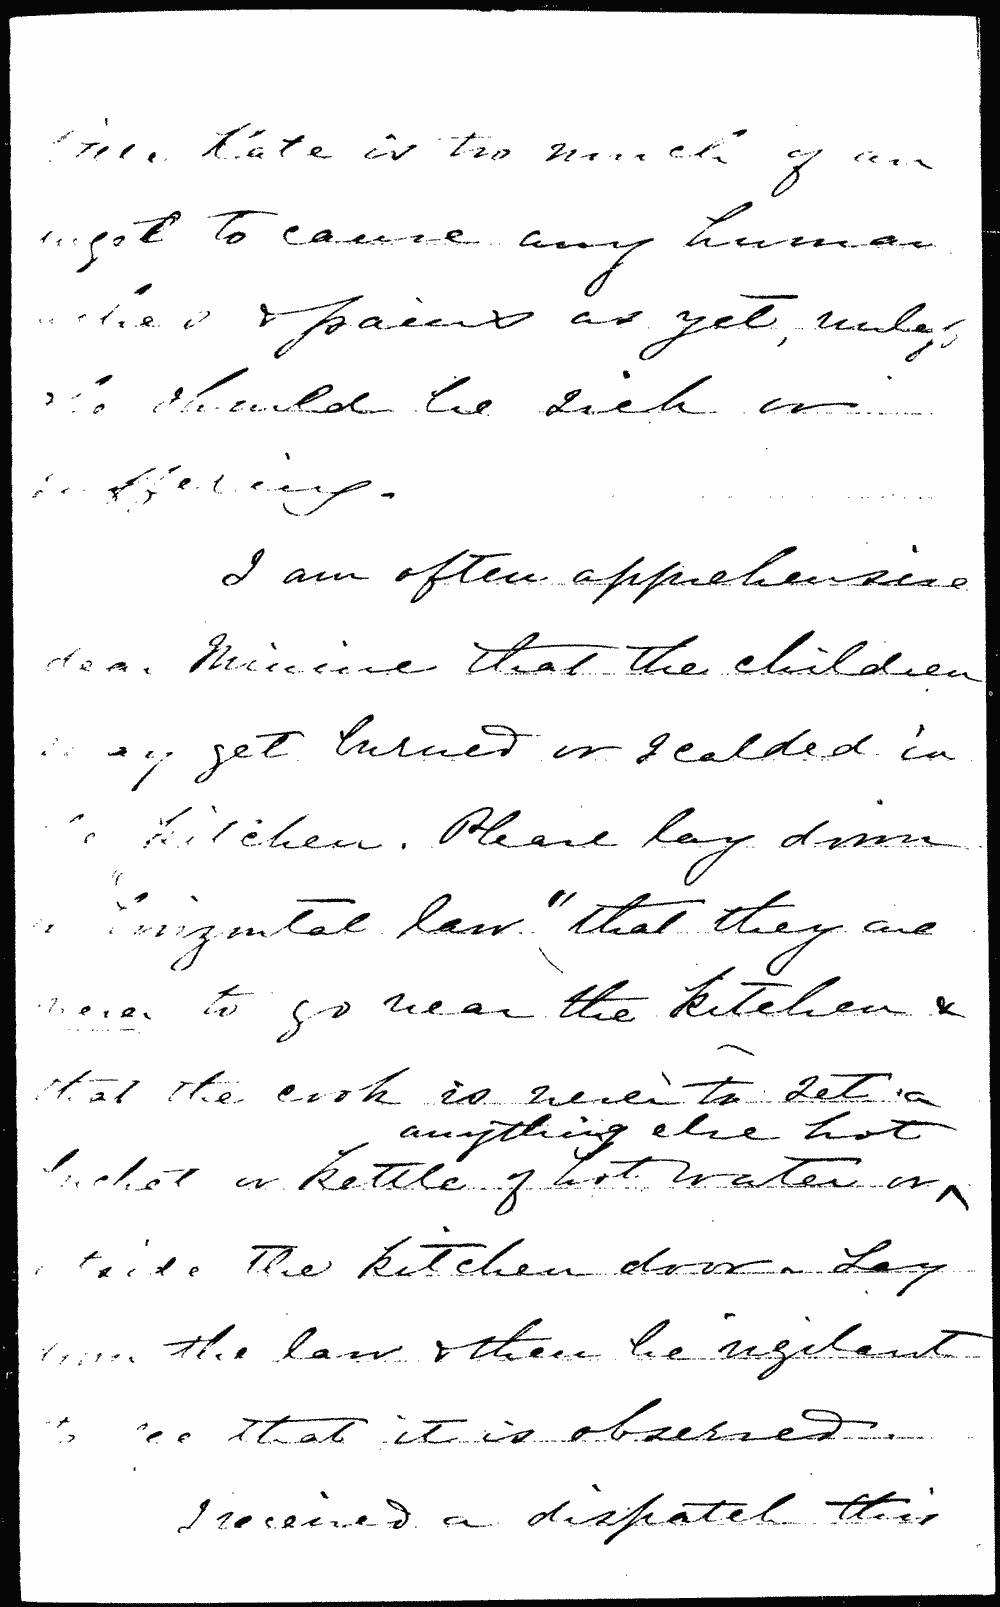 little Kate is too much of an
angel to cause any human
aches & pains as yet, unless
she should be sick or
suffering.
I am often apprehensive
dear Minnie that the children
may get burned or scalded in
the kitchen. Please lay down
a "horizontal law" that they are
never to go near the kitchen &
that the cook is never to set a
bucket or kettle of hot water or anything else hot
outside the kitchen door. Lay
down the law & then be vigilant
to see that it is observed.
I received a dispatch this